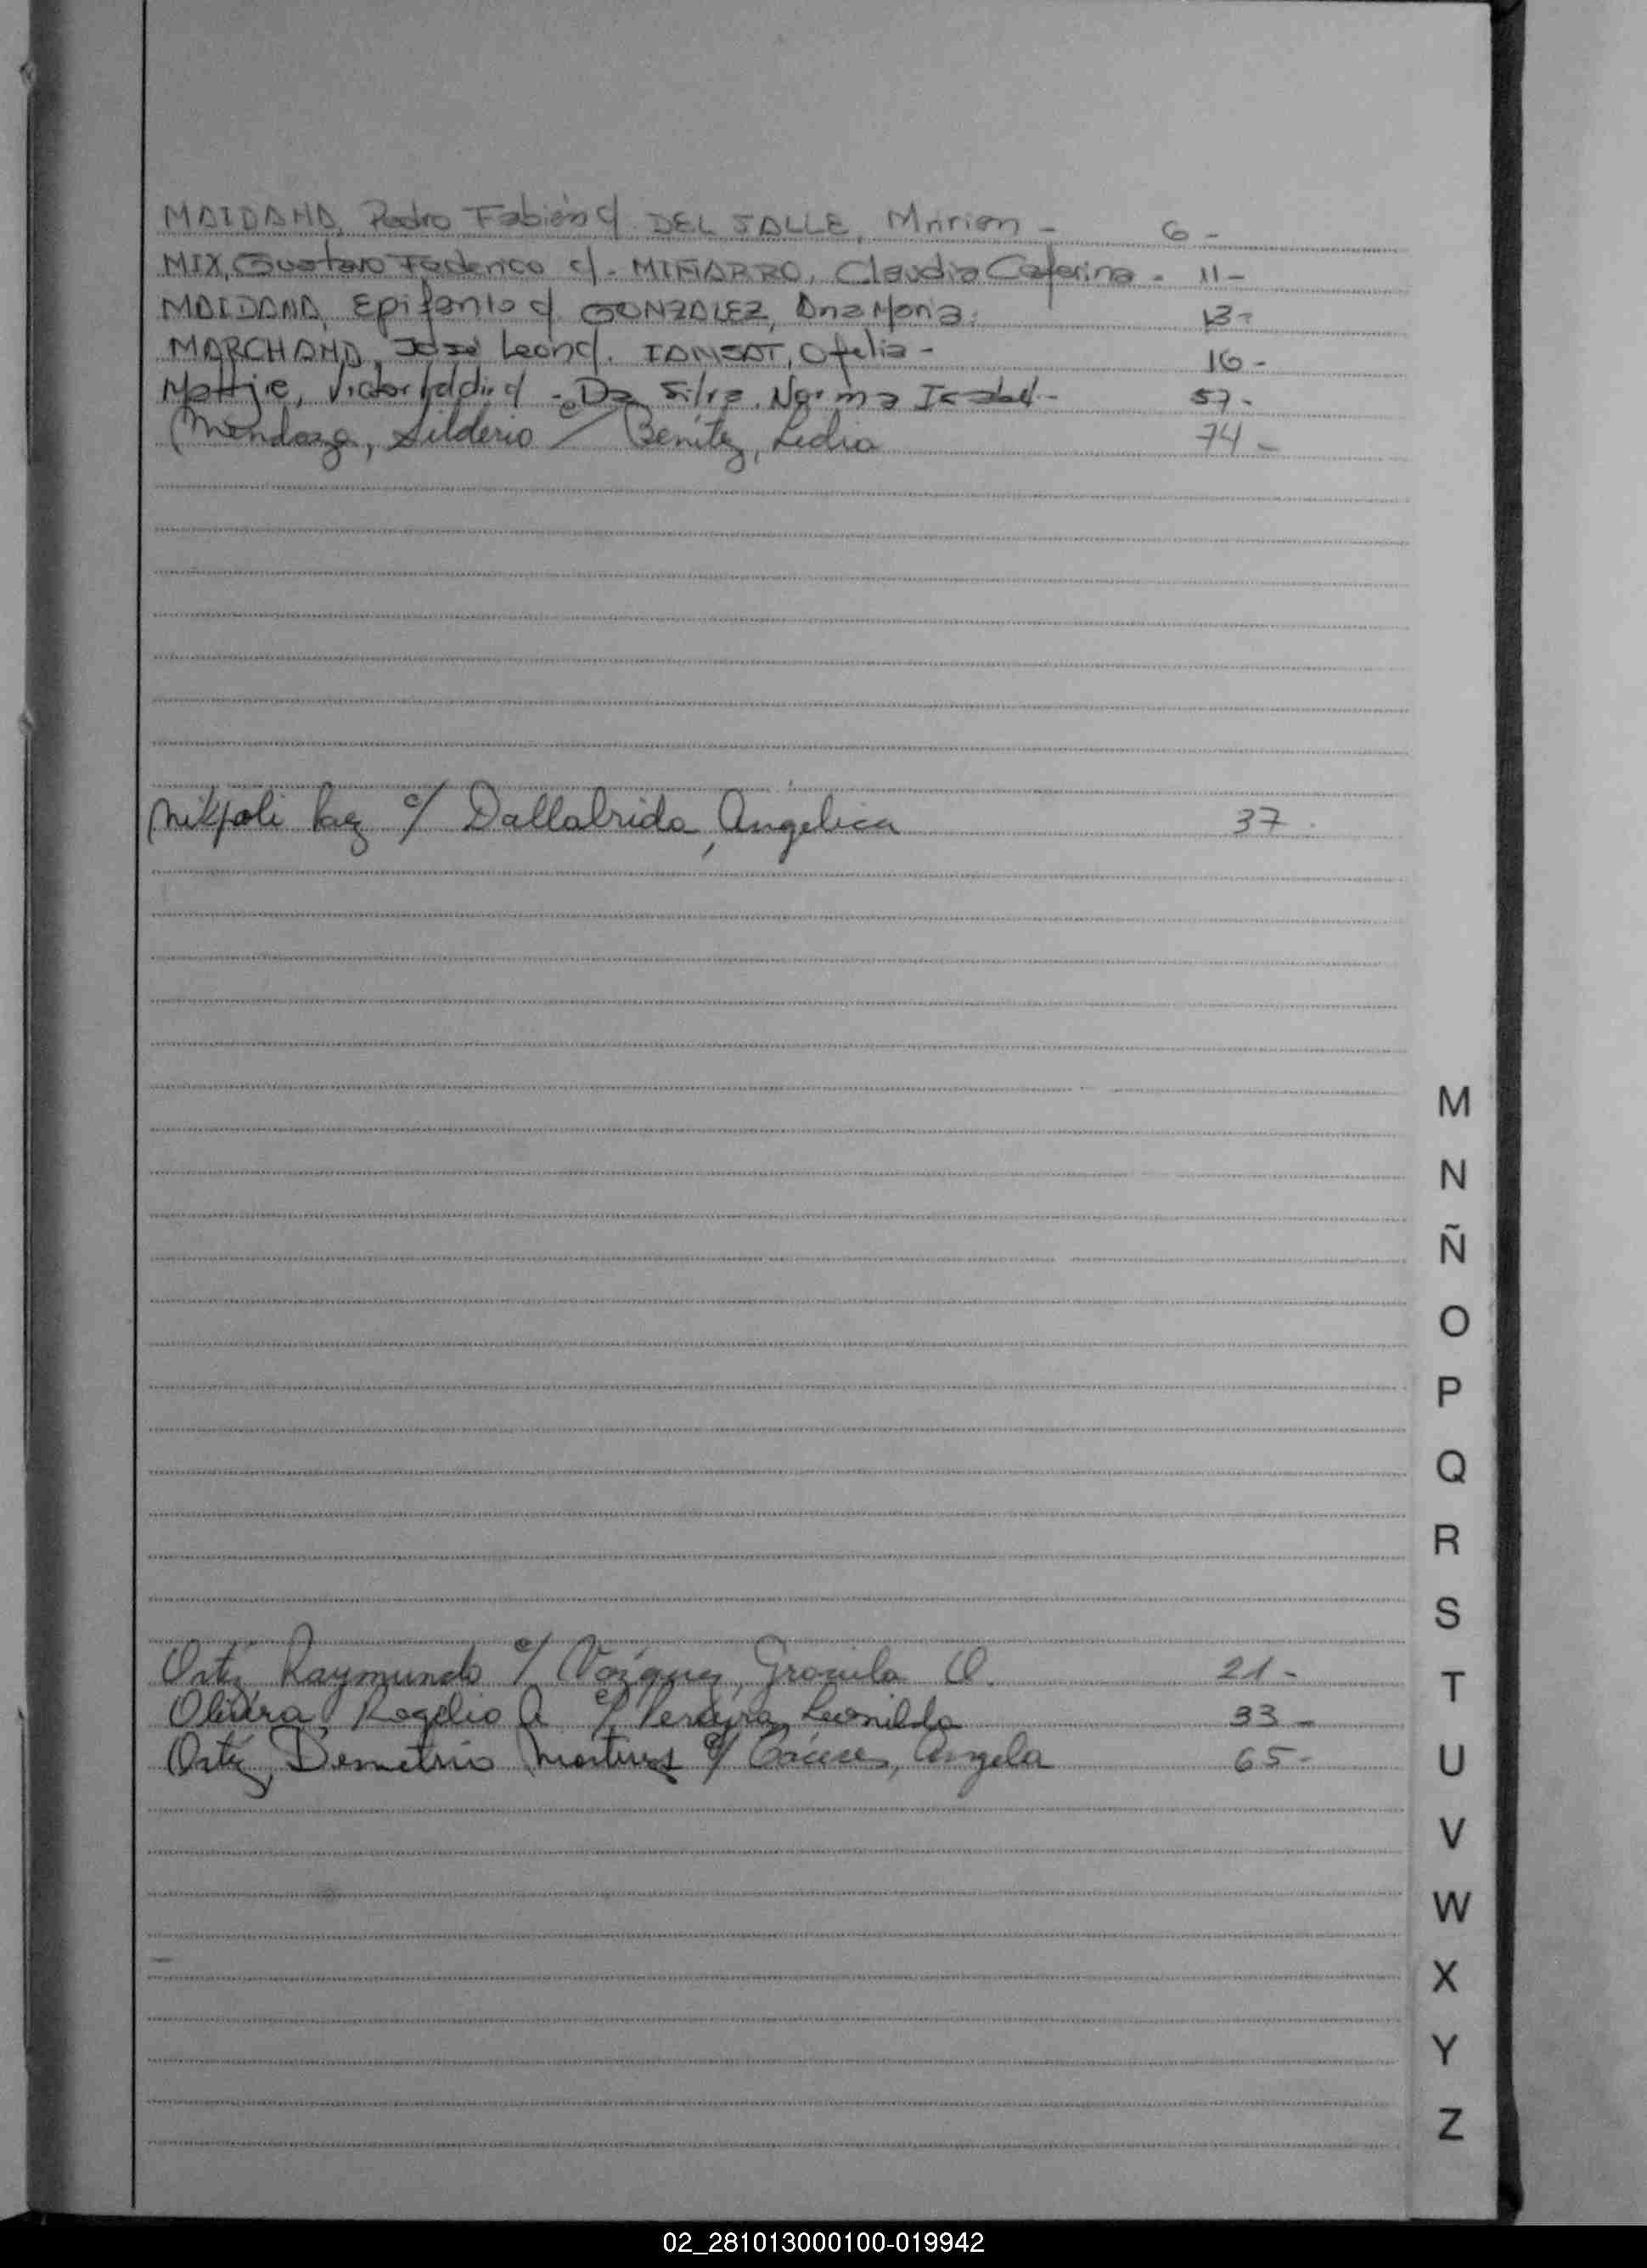 MAIDANA, Pedro Fabián c/. DEL SALLE, Mirian - 6 -
MIX, Gustavo Federico c/. MIÑARRO, Claudia Caferina - 11 -
MAIDANA, Epifanio c/. GONZALEZ, Ana Maria. 13 -
MARCHAND, José León c/. IAMSAT, Ofelia - 16 -
Mattje, Victor c/ - Da Silva, Norma Isabel - 57 -
Mendoza, Silderio c/ Benítez, Ledia 74 -
Paz c/ Dallabrida, Angélica 37
Ortíz Raymundo c/ O. 21 -
Olivera, Rogelio A c/ Pereyra, Leonilda 33 -
Ortíz, Demetrio c/ Cáceres, Angela 65 -
M
N
Ñ
O
P
Q
R
S
T
U
V
W
X
Y
Z
02_281013000100-019942